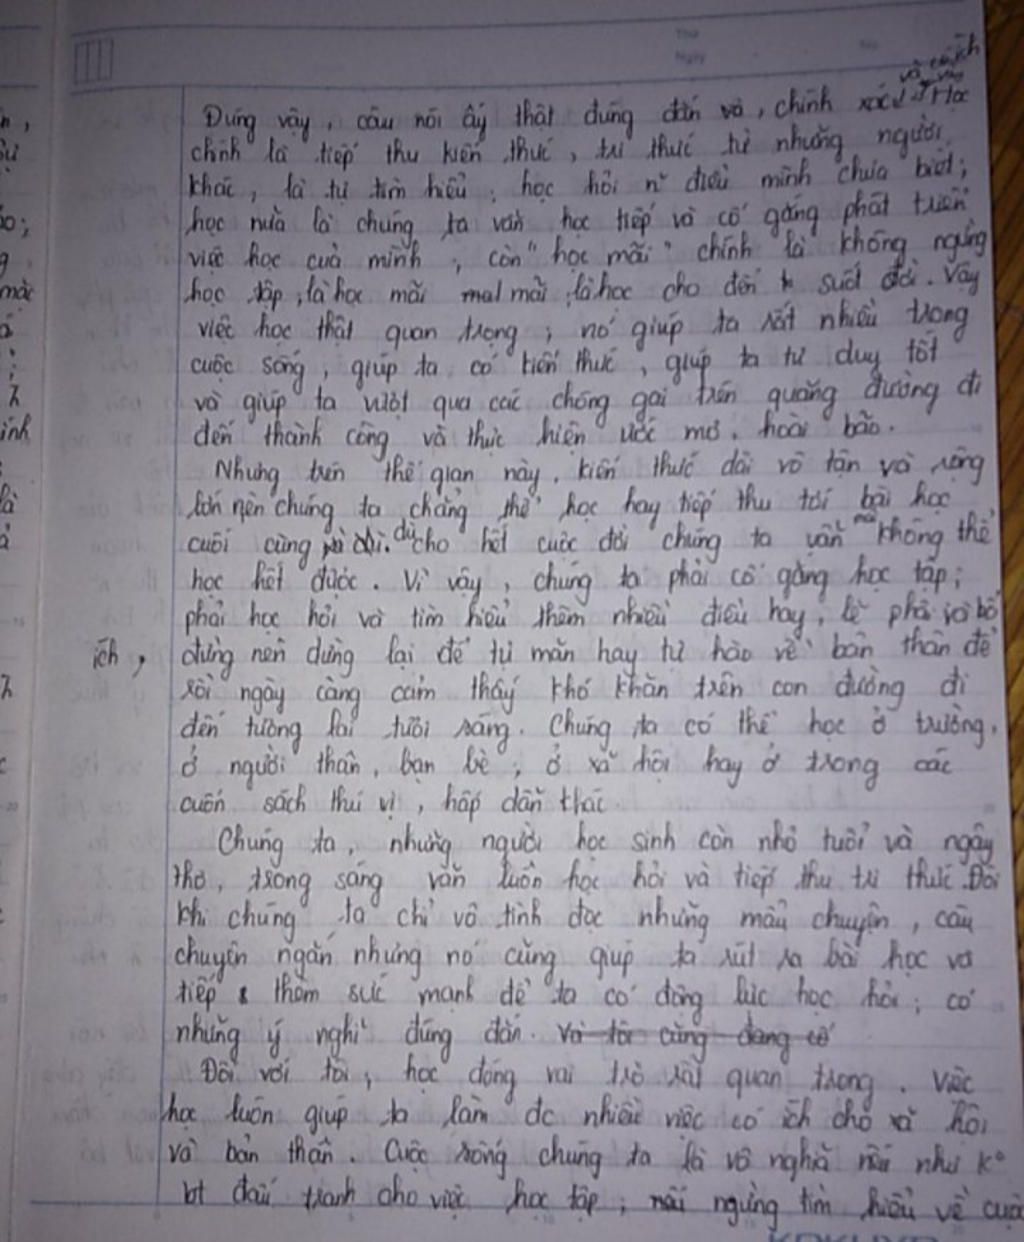 Thứ
Ngày
No
và cách
Đúng vậy, câu nói ấy thật đúng đắn và, chính xác Học
chính là tiếp thu kiến thức, tri thức từ những người
khác, là tự tìm hiểu, học hỏi n~ điều mình chưa biết;
học nữa là chúng ta vẫn học tiếp và cố gắng phát triển
việc học của mình, còn "học mãi" chính là không ngừng
học tập, là học mãi mãi, là học cho đến suốt đời. Vậy
việc học thật quan trọng, nó giúp ta rất nhiều trong
cuộc sống, giúp ta có kiến thức, giúp ta tư duy tốt
và giúp ta vượt qua các chông gai trên quãng đường đi
đến thành công và thực hiện ước mơ, hoài bão.
Nhưng trên thế gian này, kiến thức dài vô tận và rộng
lớn nên chúng ta chẳng thể học hay tiếp thu tới bài học
cuối cùng dù cho hết cuộc đời chúng ta vẫn không thể
học hết được. Vì vậy, chúng ta phải cố gắng học tập;
phải học hỏi và tìm hiểu thêm nhiều điều hay, lẽ phải bổ
ích, đừng nên dừng lại để tự mãn hay tự hào về bản thân để
rồi ngày càng cảm thấy khó khăn trên con đường đi
đến tương lai tươi sáng. Chúng ta có thể học ở trường,
ở người thân, bạn bè, ở xã hội hay ở trong các
cuốn sách thú vị, hấp dẫn khác.
Chúng ta, những người học sinh còn nhỏ tuổi và ngây
thơ, trong sáng vẫn luôn học hỏi và tiếp thu tri thức. Đôi
khi chúng ta chỉ vô tình đọc những mẩu chuyện, câu
chuyện ngắn nhưng nó cũng giúp ta rút ra bài học và
tiếp thêm sức mạnh để ta có động lực học hỏi; có
những ý nghĩ đúng đắn. Và tôi cũng đang cố
Đối với tôi, học đóng vai trò rất quan trọng. Việc
học luôn giúp ta làm đc nhiều việc có ích cho xã hội
và bản thân. Cuộc sống chúng ta là vô nghĩa nếu như k°
bt đấu tranh cho việc học tập; nếu ngừng tìm hiểu về cuộc